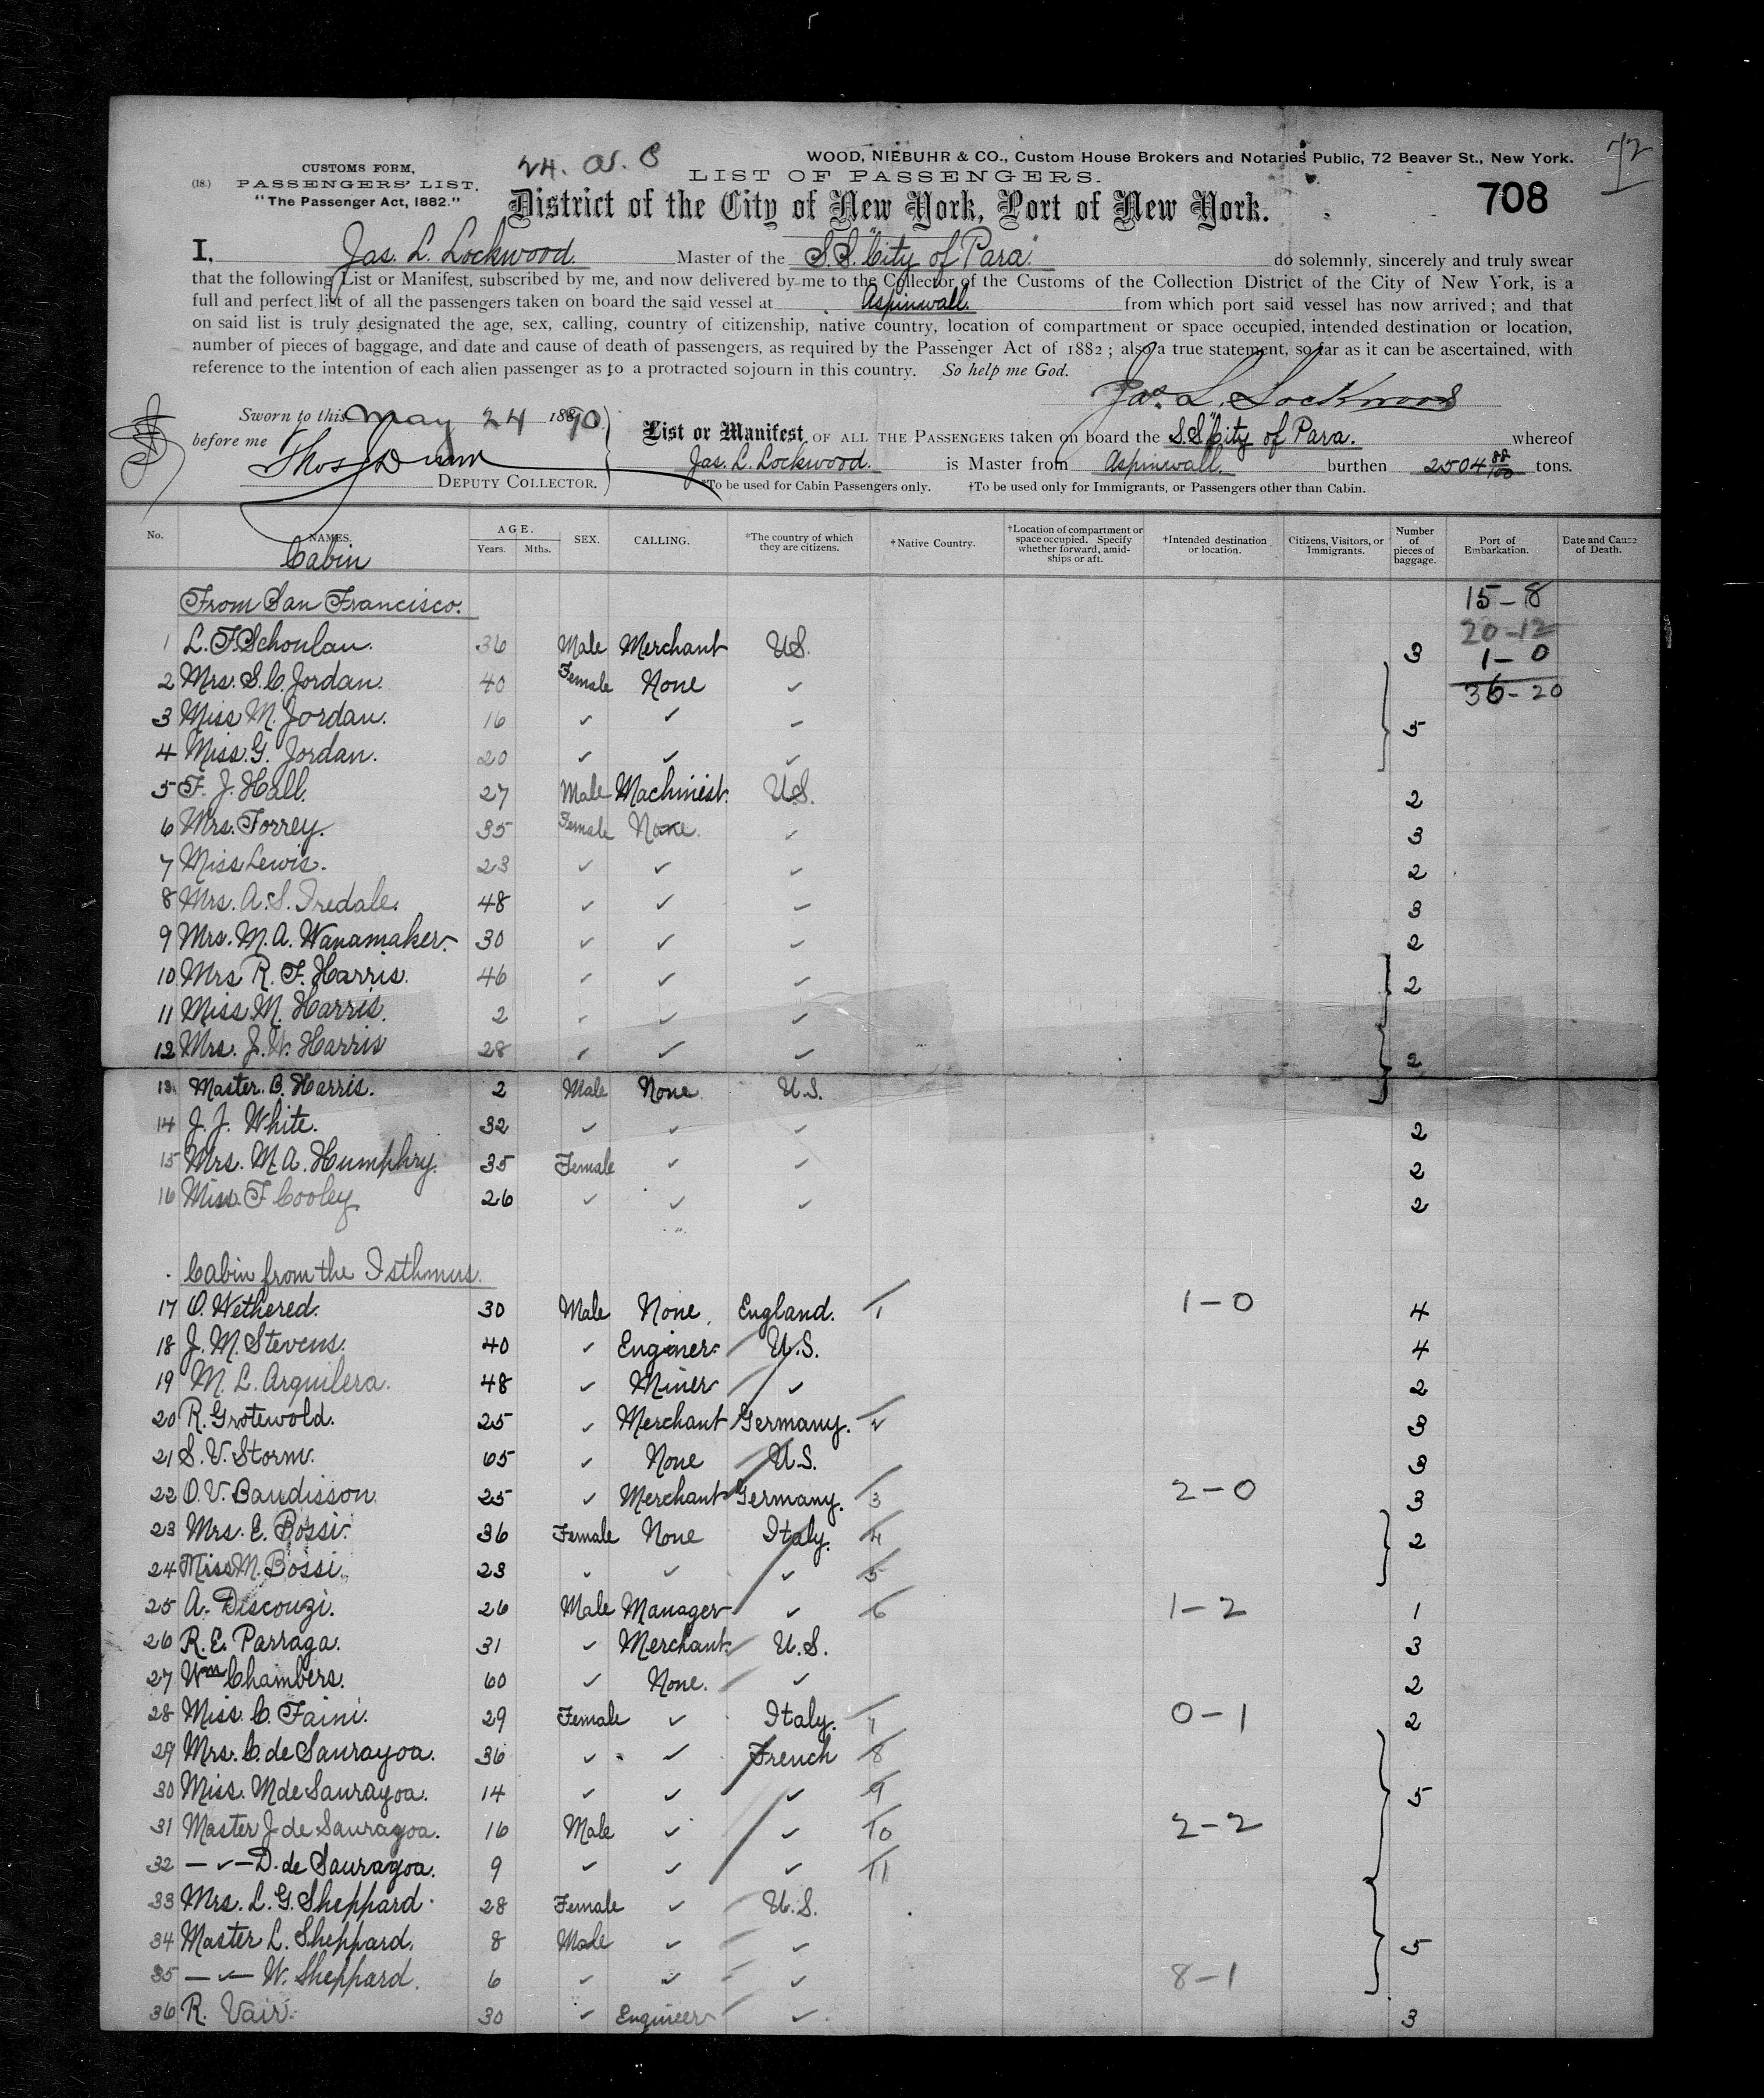 72
24. O. S. C
WOOD, NIEBUHR & CO., Custom House Brokers and Notaries Public, 72 Beaver St., New York.
CUSTOMS FORM,
LIST OF PASSENGERS.
(18.) PASSENGERS' LIST.
708
"The Passenger Act, 1882."
District of the City of New York, Port of New York.
I, Jas. L. Lockwood. Master of the S.S. "City of Para." do solemnly, sincerely and truly swear
that the following List or Manifest, subscribed by me, and now delivered by me to the Collector of the Customs of the Collection District of the City of New York, is a
full and perfect list of all the passengers taken on board the said vessel at Aspinwall. from which port said vessel has now arrived; and that
on said list is truly designated the age, sex, calling, country of citizenship, native country, location of compartment or space occupied, intended destination or location,
number of pieces of baggage, and date and cause of death of passengers, as required by the Passenger Act of 1882; also a true statement, so far as it can be ascertained, with
reference to the intention of each alien passenger as to a protracted sojourn in this country. So help me God.
Jas. L. Lockwood
Sworn to this May 24 1890.
before me
List or Manifest OF ALL THE PASSENGERS taken on board the S.S. "City of Para. whereof
DEPUTY COLLECTOR.
Jas. L. Lockwood. is Master from Aspinwall. burthen 2504 88/100 tons.
*To be used for Cabin Passengers only. †To be used only for Immigrants, or Passengers other than Cabin.
No. NAMES. AGE. Years. Mths. SEX. CALLING. *The country of which they are citizens. †Native Country. †Location of compartment or space occupied. Specify whether forward, amidships or aft. †Intended destination or location. Citizens, Visitors, or Immigrants. Number of pieces of baggage. Port of Embarkation. Date and Cause of Death.
Cabin
From San Francisco. 15-8
20-12
1 L. F. Schoulau. 36 Male Merchant U.S. 3 1-0
2 Mrs. S. C. Jordan. 40 Female None ✓ 36-20
3 Miss M. Jordan. 16 ✓ ✓ ✓ 5
4 Miss. G. Jordan. 20 ✓ ✓ ✓
5 F. J. Hall. 27 Male Machinist. U.S. 2
6 Mrs. Torrey. 35 Female None. ✓ 3
7 Miss Lewis. 23 ✓ ✓ ✓ 2
8 Mrs. A. S. Iredale. 48 ✓ ✓ ✓ 3
9 Mrs. M. A. Wanamaker. 30 ✓ ✓ ✓ 2
10 Mrs R. F. Harris. 46 ✓ ✓ ✓ 2
11 Miss. M. Harris. 2 ✓ ✓ ✓
12 Mrs. J. W. Harris 28 ✓ ✓ ✓ 2
13 Master. B. Harris. 2 Male None. U.S.
14 J. J. White. 32 ✓ ✓ ✓ 2
15 Mrs. M. A. Humphry. 35 Female ✓ ✓ 2
16 Miss. F Cooley. 26 ✓ ✓ ✓ 2
Cabin from the Isthmus.
17 O. Wethered. 30 Male None, England. 1 1-0 4
18 J. M. Stevens. 40 ✓ Enginer U.S. 4
19 M. L. Arquilera. 48 ✓ Miner ✓ 2
20 R. Grotewold. 25 ✓ Merchant Germany. 2 3
21 S. V. Storm. 65 ✓ None U.S. 3
22 O. V. Baudisson. 25 ✓ Merchant Germany. 3 2-0 3
23 Mrs. E. Bossi. 36 Female None Italy. 4 2
24 Miss M. Bossi. 23 ✓ ✓ ✓ 5
25 A. Discouzi. 26 Male Manager ✓ 6 1-2 1
26 R. E. Parraga. 31 ✓ Merchant. U.S. 3
27 Wm Chambers. 60 ✓ None. ✓ 2
28 Miss. C. Faini. 29 Female ✓ Italy. 7 0-1 2
29 Mrs. C. de Saurayoa. 36 ✓ ✓ French 8
30 Miss. M de Saurayoa. 14 ✓ ✓ ✓ 9 5
31 Master J de Saurayoa. 16 Male ✓ ✓ 10 2-2
32 — ✓ — D. de Saurayoa. 9 ✓ ✓ ✓ 11
33 Mrs. L. G. Sheppard. 28 Female ✓ U.S.
34 Master L. Sheppard. 8 Male ✓ ✓ 5
35 — ✓ — W. Sheppard. 6 ✓ ✓ ✓ 8-1
36 R. Vair. 30 ✓ Engineer ✓ 3